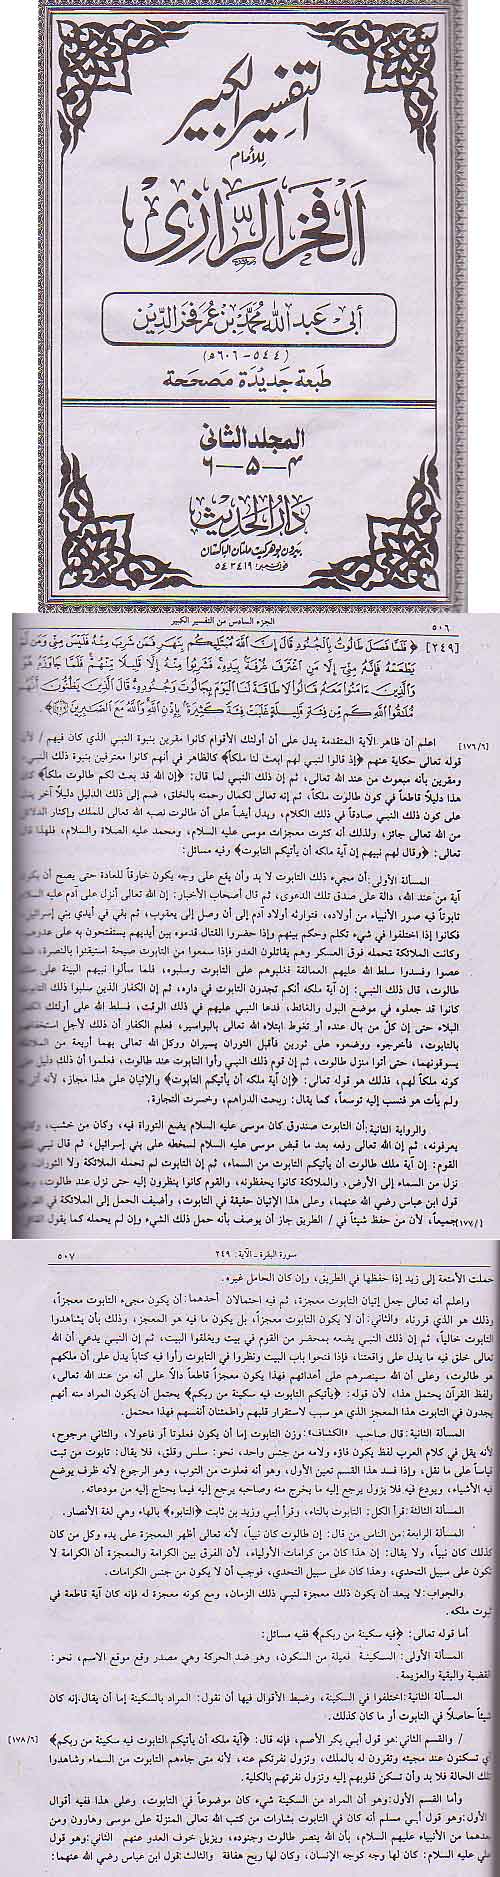 التفسير الكبير
للامام
الفخر الرازى
أبى عبد الله محمد بن عمر فخر الدين
(٥٤٤ - ٦٠٦ ه)
طبعة جديدة مصححة
المجلد الثانى
٤ - ٥ - ٦
دار الحديث
بيرون بوهر كيت ملتان الباكستان
٥٤٣٤١٩
٥٠٦ الجزء السادس من التفسير الكبير
[٢٤٩] ﴿ فَلَمَّا فَصَلَ طَالُوتُ بِالْجُنُودِ قَالَ إِنَّ اللَّهَ مُبْتَلِيكُم بِنَهَرٍ فَمَن شَرِبَ مِنْهُ فَلَيْسَ مِنِّي وَمَن لَّمْ
يَطْعَمْهُ فَإِنَّهُ مِنِّي إِلَّا مَنِ اغْتَرَفَ غُرْفَةً بِيَدِهِ فَشَرِبُوا مِنْهُ إِلَّا قَلِيلًا مِنْهُمْ فَلَمَّا جَاوَزَهُ هُوَ
وَالَّذِينَ آمَنُوا مَعَهُ قَالُوا لَا طَاقَةَ لَنَا الْيَوْمَ بِجَالُوتَ وَجُنُودِهِ قَالَ الَّذِينَ يَظُنُّونَ أَنَّهُم
مُلَاقُوا اللَّهِ كَم مِن فِئَةٍ قَلِيلَةٍ غَلَبَتْ فِئَةً كَثِيرَةً بِإِذْنِ اللَّهِ وَاللَّهُ مَعَ الصَّابِرِينَ ﴾
[١٧٦/٦] اعلم أن ظاهر الآية المتقدمة يدل على أن أولئك الأقوام كانوا مقرين بنبوة النبي الذي كان فيهم / لأن
قوله تعالى حكاية عنهم ﴿إذ قالوا لنبي لهم ابعث لنا ملكاً﴾ كالظاهر في أنهم كانوا معترفين بنبوة ذلك النبي،
ومقرين بأنه مبعوث من عند الله تعالى، ثم إن ذلك النبي لما قال: ﴿إن الله قد بعث لكم طالوت ملكاً﴾ كان
هذا دليلاً قاطعاً في كون طالوت ملكاً، ثم إنه تعالى لكمال رحمته بالخلق، ضم إلى ذلك الدليل دليلاً آخر يدل
على كون ذلك النبي صادقاً في ذلك الكلام، ويدل أيضاً على أن طالوت نصبه الله تعالى للملك وإكثار الدلائل
من الله تعالى جائز، ولذلك أنه كثرت معجزات موسى عليه السلام، ومحمد عليه الصلاة والسلام، فلهذا قال
تعالى: ﴿وقال لهم نبيهم إن آية ملكه أن يأتيكم التابوت﴾ وفيه مسائل:
المسألة الأولى: أن مجيء ذلك التابوت لا بد وأن يقع على وجه يكون خارقاً للعادة حتى يصح أن يكون
آية من عند الله، دالة على صدق تلك الدعوى، ثم قال أصحاب الأخبار: إن الله تعالى أنزل على آدم عليه السلام
تابوتاً فيه صور الأنبياء من أولاده، فتوارثه أولاد آدم إلى أن وصل إلى يعقوب، ثم بقي في أيدي بني إسرائيل،
فكانوا إذا اختلفوا في شيء تكلم وحكم بينهم وإذا حضروا القتال قدموه بين أيديهم يستفتحون به على عدوهم،
وكانت الملائكة تحمله فوق العسكر وهم يقاتلون العدو فإذا سمعوا من التابوت صيحة استيقنوا بالنصرة، فلما
عصوا وفسدوا سلط الله عليهم العمالقة فغلبوهم على التابوت وسلبوه، فلما سألوا نبيهم البينة على ملك
طالوت، قال ذلك النبي: إن آية ملكه أنكم تجدون التابوت في داره، ثم إن الكفار الذين سلبوا ذلك التابوت
كانوا قد جعلوه في موضع البول والغائط، فدعا النبي عليهم في ذلك الوقت، فسلط الله على أولئك الكفار
البلاء حتى إن كل من بال عنده أو تغوط ابتلاه الله تعالى بالبواسير، فعلم الكفار أن ذلك لأجل استخفافهم
بالتابوت، فأخرجوه ووضعوه على ثورين فأقبل الثوران يسيران ووكل الله تعالى بهما أربعة من الملائكة
يسوقونهما، حتى أتوا منزل طالوت، ثم إن قوم ذلك النبي رأوا التابوت عند طالوت، فعلموا أن ذلك دليل على
كونه ملكاً لهم، فذلك هو قوله تعالى: ﴿إن آية ملكه أن يأتيكم التابوت﴾ والإتيان على هذا مجاز، لأنه أتي به
ولم يأت هو فنسب إليه توسعاً، كما يقال: ربحت الدراهم، وخسرت التجارة.
والرواية الثانية: أن التابوت صندوق كان موسى عليه السلام يضع التوراة فيه، وكان من خشب، وكانوا
يعرفونه، ثم إن الله تعالى رفعه بعد ما قبض موسى عليه السلام لسخطه على بني إسرائيل، ثم قال نبي ذلك
القوم: إن آية ملك طالوت أن يأتيكم التابوت من السماء، ثم إن التابوت لم تحمله الملائكة ولا الثوران، بل
نزل من السماء إلى الأرض، والملائكة كانوا يحفظونه، والقوم كانوا ينظرون إليه حتى نزل عند طالوت، وهذا
قول ابن عباس رضي الله عنهما، وعلى هذا الإتيان حقيقة في التابوت، وأضيف الحمل إلى الملائكة في القولين
[١٧٧/] جميعاً، لأن من حفظ شيئاً في / الطريق جاز أن يوصف بأنه حمل ذلك الشيء وإن لم يحمله كما يقول القائل:
سورة البقرة - الآية: ٢٤٩ ٥٠٧
حملت الأمتعة إلى زيد إذا حفظها في الطريق، وإن كان الحامل غيره.
واعلم أنه تعالى جعل إتيان التابوت معجزة، ثم فيه احتمالان أحدهما: أن يكون مجيء التابوت معجزاً،
وذلك هو الذي قررناه والثاني: أن لا يكون التابوت معجزاً، بل يكون ما فيه هو المعجز، وذلك بأن يشاهدوا
التابوت خالياً، ثم إن ذلك النبي يضعه بمحضر من القوم في بيت ويغلقوا البيت، ثم إن النبي يدعي أن الله
تعالى خلق فيه ما يدل على واقعتنا، فإذا فتحوا باب البيت ونظروا في التابوت رأوا فيه كتاباً يدل على أن ملكهم
هو طالوت، وعلى أن الله سينصرهم على أعدائهم فهذا يكون معجزاً قاطعاً دالاً على أنه من عند الله تعالى،
ولفظ القرآن يحتمل هذا، لأن قوله: ﴿يأتيكم التابوت فيه سكينة من ربكم﴾ يحتمل أن يكون المراد منه أنهم
يجدون في التابوت هذا المعجز الذي هو سبب لاستقرار قلبهم واطمئنان أنفسهم فهذا محتمل.
المسألة الثانية: قال صاحب «الكشاف»: وزن التابوت إما أن يكون فعلوتاً أو فاعولا، والثاني مرجوح،
لأنه يقل في كلام العرب لفظ يكون فاؤه ولامه من جنس واحد، نحو: سلس وقلق، فلا يقال: تابوت من تبت
قياساً على ما نقل، وإذا فسد هذا القسم تعين الأول، وهو أنه فعلوت من التوب، وهو الرجوع لأنه ظرف يوضع
فيه الأشياء، ويودع فيه فلا يزول يرجع إليه ما يخرج منه وصاحبه يرجع إليه فيما يحتاج إليه من مودعاته.
المسألة الثالثة: قرأ الكل: التابوت بالتاء، وقرأ أبي وزيد بن ثابت ﴿التابوه﴾ بالهاء وهي لغة الأنصار.
المسألة الرابعة: من الناس من قال: إن طالوت كان نبياً، لأنه تعالى أظهر المعجزة على يده وكل من كان
كذلك كان نبياً، ولا يقال: إن هذا كان من كرامات الأولياء، لأن الفرق بين الكرامة والمعجزة أن الكرامة لا
تكون على سبيل التحدي، وهذا كان على سبيل التحدي، فوجب أن لا يكون من جنس الكرامات.
والجواب: لا يبعد أن يكون ذلك معجزة لنبي ذلك الزمان، ومع كونه معجزة له فإنه كان آية قاطعة في
ثبوت ملكه.
أما قوله تعالى: ﴿فيه سكينة من ربكم﴾ ففيه مسائل:
المسألة الأولى: السكينة فعيلة من السكون، وهو ضد الحركة وهي مصدر وقع موقع الاسم، نحو:
القضية والبقية والعزيمة.
المسألة الثانية: اختلفوا في السكينة، وضبط الأقوال فيها أن نقول: المراد بالسكينة إما أن يقال إنه كان
شيئاً حاصلاً في التابوت أو ما كان كذلك.
/ والقسم الثاني: هو قول أبي بكر الأصم، فإنه قال: ﴿آية ملكه أن يأتيكم التابوت فيه سكينة من ربكم﴾ [١٧٨/٦]
أي تسكنون عند مجيئه وتقرون له بالملك، وتزول نفرتكم عنه، لأنه متى جاءهم التابوت من السماء وشاهدوا
تلك الحالة فلا بد وأن تسكن قلوبهم إليه وتزول نفرتهم بالكلية.
وأما القسم الأول: وهو أن المراد من السكينة شيء كان موضوعاً في التابوت، وعلى هذا ففيه أقوال
الأول: وهو قول أبي مسلم أنه كان في التابوت بشارات من كتب الله تعالى المنزلة على موسى وهارون ومن
بعدهما من الأنبياء عليهم السلام، بأن الله ينصر طالوت وجنوده، ويزيل خوف العدو عنهم الثاني: وهو قول
علي عليه السلام: كان لها وجه كوجه الإنسان، وكان لها ريح هفافة والثالث: قول ابن عباس رضي الله عنهما: